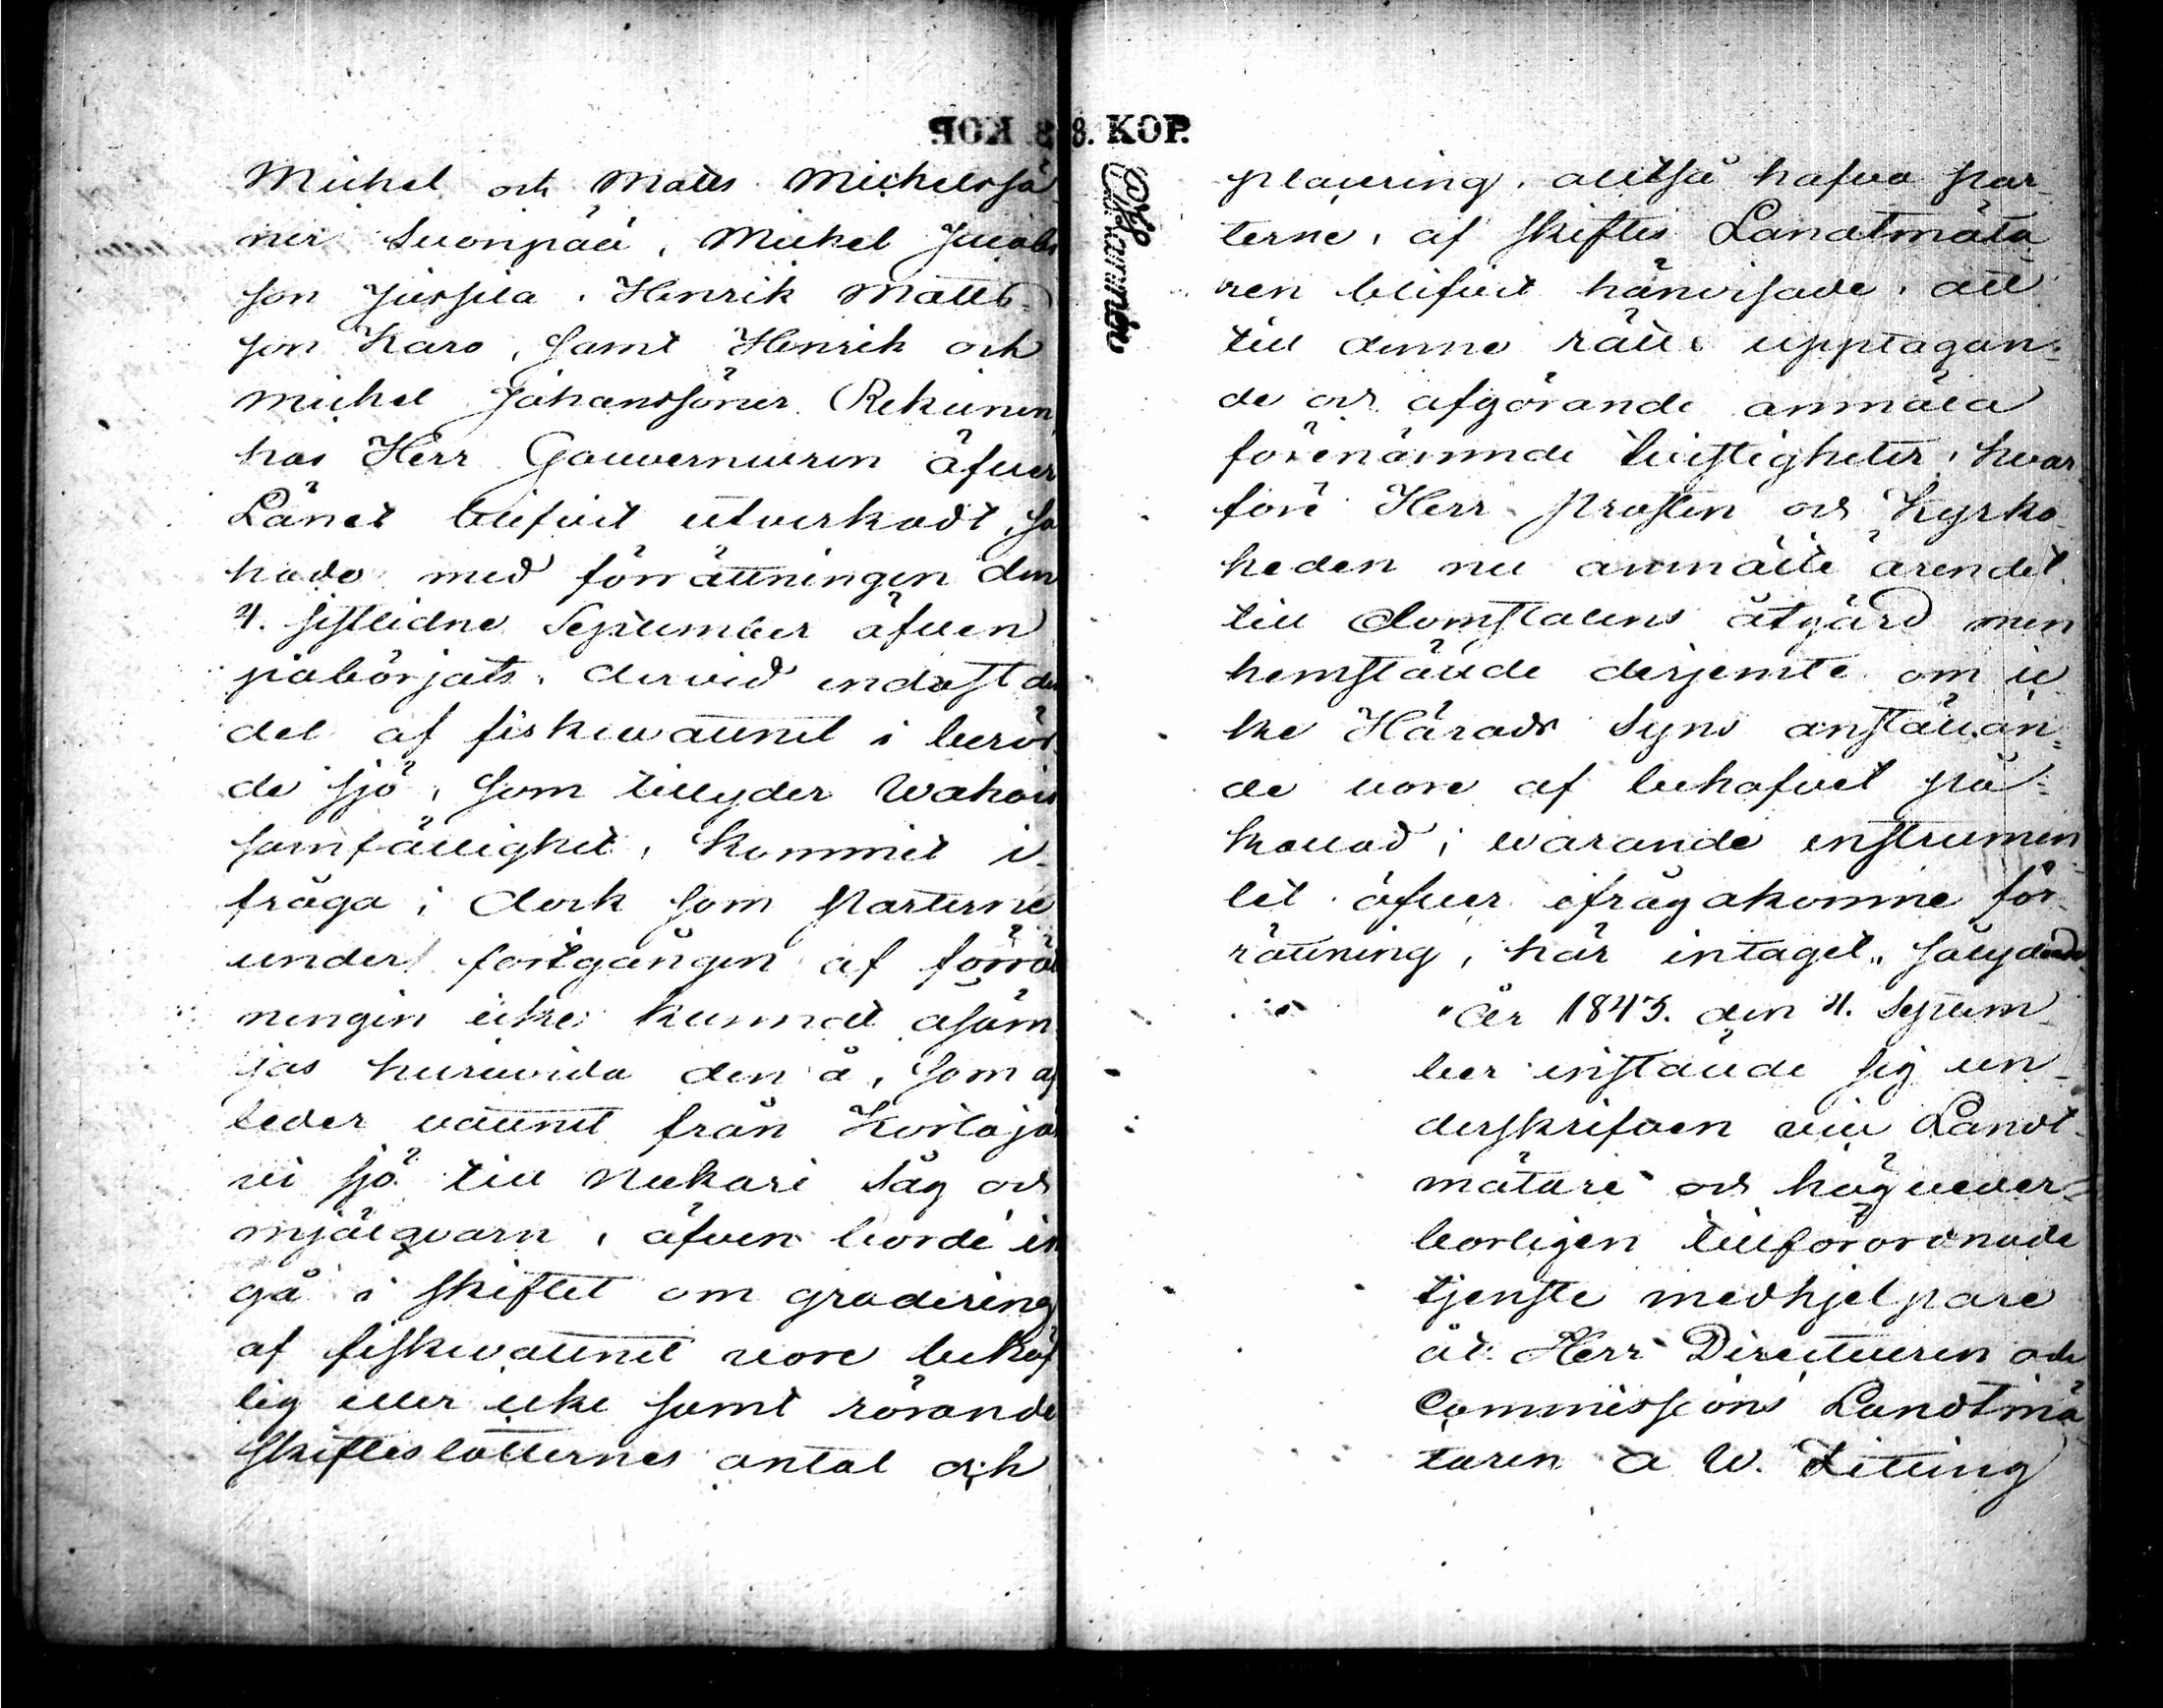 8. KOP.
Michel och Matts Michelssö
ner Suonpää, Michel Jacobs
son Jussila, Henrik Matts-
son Karo, samt Henrik och
Michel Johanssöner Rekunen
hos Herr Gouverneuren öfver
Länet blifvit utverkadt, så
hade med förrättningen den
4. sistlidne September äfven
påbörjats, dervid endast den
del af fiskevattnet i berör
de sjö, som tillyder Wahois
samfällighet, kommit i
fråga; dock som Parterne
under fortgången af förrätt
ningen icke kunnat åsäm
jas huruvida den å, som af
leder vattnet från
sjö till Nukari såg och
mjölqvarn, äfven borde in
gå i skiftet om gradering
af fiskevattnet vore behöf
lig eller icke samt rörande
skifteslotternes antal och
8. KOP.
placering, alltså hafva Par
terne, af skiftes Landtmäta
ren blifvit hänvisade, att
till denne rätts upptagan-
de och afgörande anmäla
förenämnde tvistigheter, hvar
före Herr Prosten och Kyrko
heden nu anmälte ärendet
till domstolens åtgärd men
hemställde derjemte om ic
ke Härads Syns anställan-
de vore af behofvet på-
kallad; warande instrumen
tet öfver ifrågakomne för
rättning, här intaget, sålydande
"År 1843. den 4. Septem
ber inställde sig un-
derskrifven vice Landt-
mätare och högveder-
börligen tillförordnade
tjenste medhjelpare
åt Herr Directeuren och
Commissions Landtmä
taren A W.